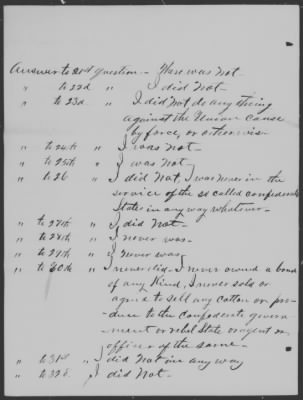 Answer to 21st question - There was not -
" to 22d " I did not -
" to 23d " I did not do any thing
against the Union cause
by force, or otherwise -
" to 24th " I was not -
" to 25th " I was not -
" to 26 " I did not, I was never in the
service of the so called confederate
States in any way whatever -
" to 27th " I did not -
" to 28th " I never was -
" to 29th " I never was -
" to 30th " I never did - I never owned a bond
of any kind, I never sold or
agreed to sell any cotton or pro-
duce to the Confederate govern-
ment or rebel State or agent or
officer of the same -
" to 31st " I did not in any way
" to 32d " I did not -